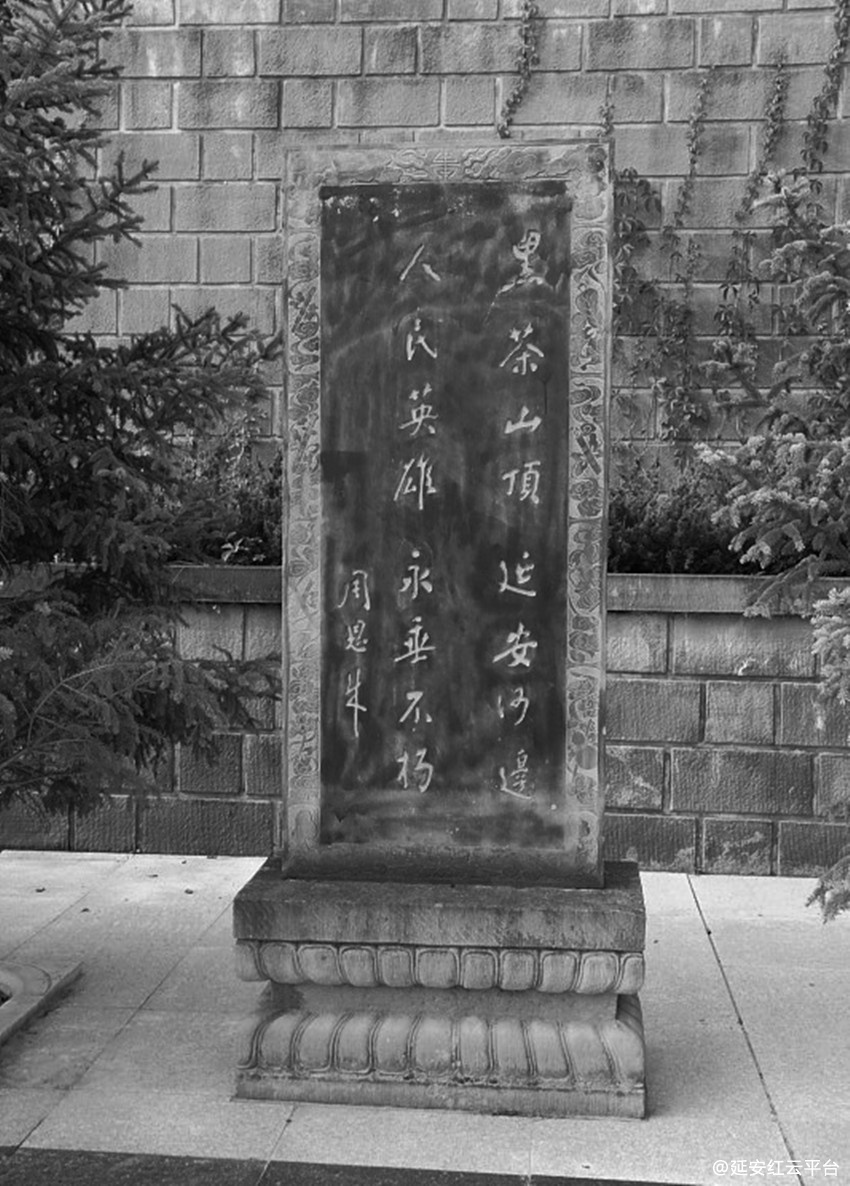 黑茶山頂 延安河邊
人民英雄 永垂不朽
周恩来
@延安红云平台